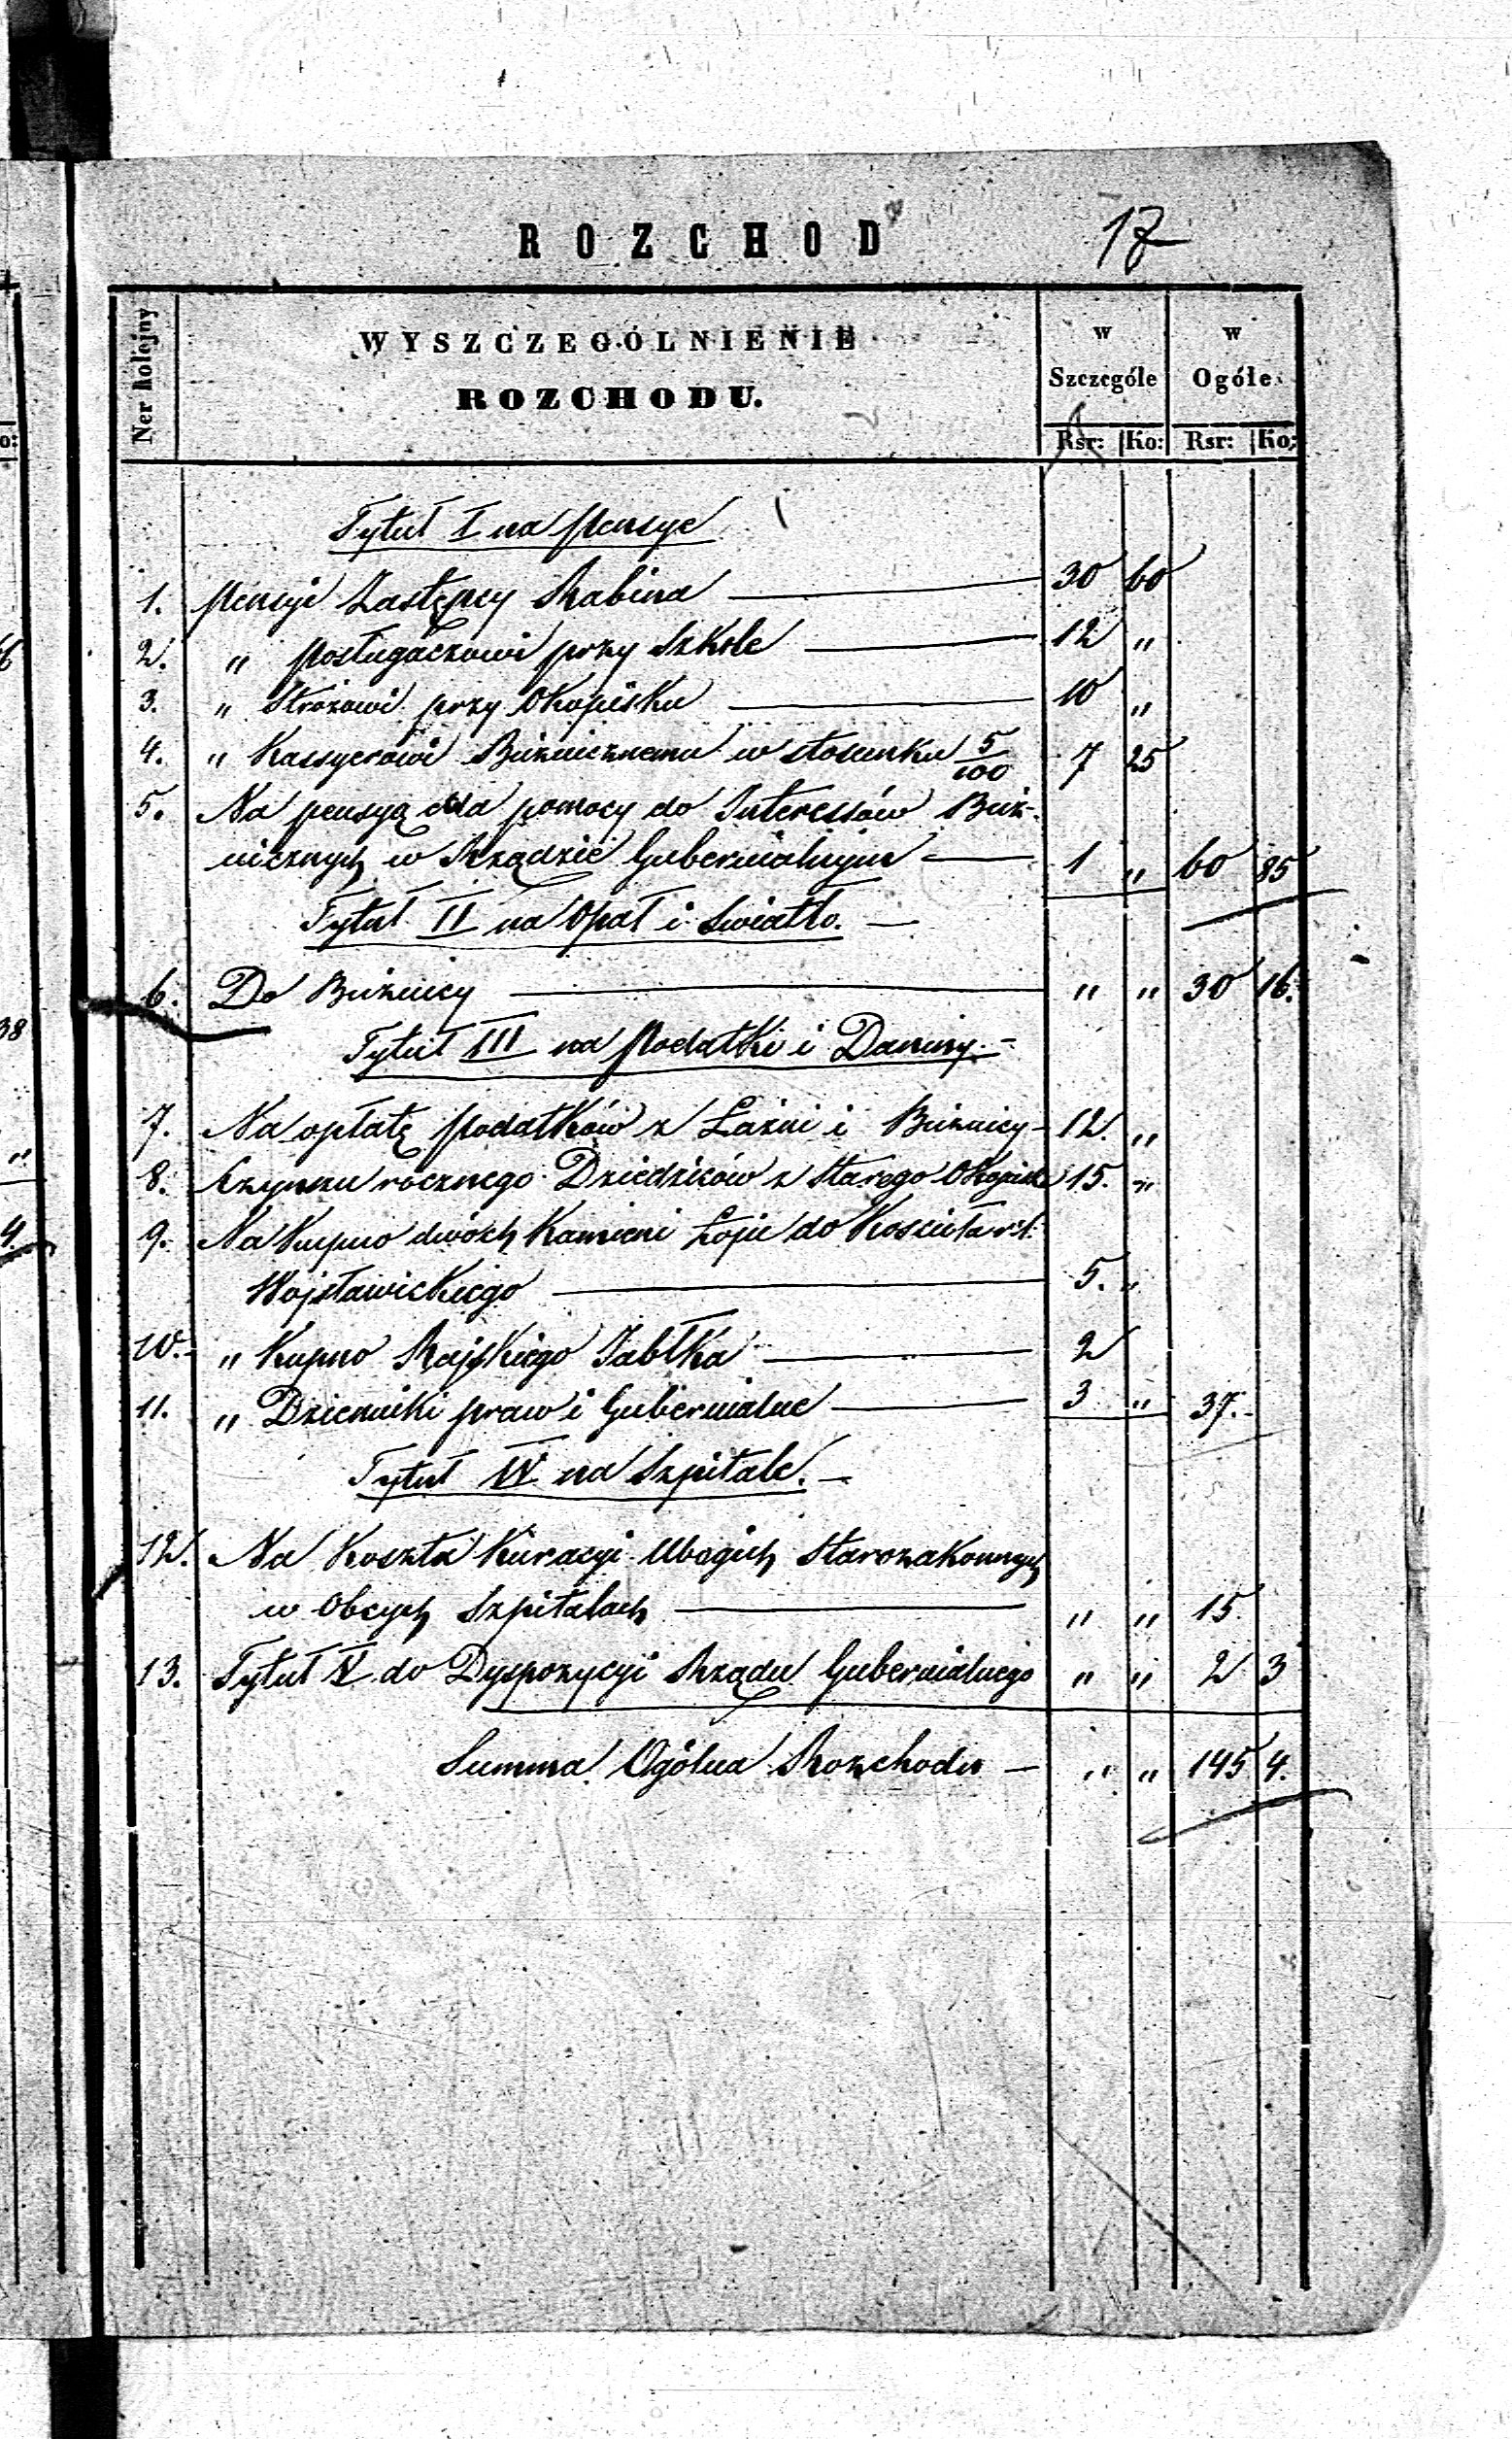 ROZCHOD 17
Ner kolejny
WYSZCZEGÓLNIENIE
ROZCHODU.
w Szczególe
w Ogóle
Rsr: Ko: Rsr: Ko:
Tytuł I na Pensye
1. Pensyi Zastępcy Rabina 30 60
2. " Posługaczowi przy Szkole 12 "
3. " Stróżowi przy Okopisku 10 "
4. " Kassyerowi Bużnicznemu w stosunku 5/100 7 25
5. Na pensyą dla pomocy do Interessów Buż-
nicznych w Rządzie Gubernialnym 1 " 60 85
Tytuł II na Opał i Swiatło.
6. Do Bużnicy " " 30 16.
Tytuł III na Podatki i Daniny.
7. Na opłatę Podatków z Łaźni i Bużnicy 12. "
8. Czynszu rocznego Dziedziców z Starego Okopiska 15. "
9. Na Kupno dwóch Kamieni Łoju do Kościoła r:l:
Wojsławickiego 5. "
10. " Kupno Rajskiego Jabłka 2
11. " Dzienniki praw i Gubernialne 3 " 37.
Tytuł IV na Szpitale.
12. Na Koszta Kuracyi Ubogich Starozakonnych
w Obcych Szpitalach " " 15.
13. Tytuł V do Dyspozycyi Rządu Gubernialnego " " 2 3
Summa Ogólna Rozchodu " " 145 4.